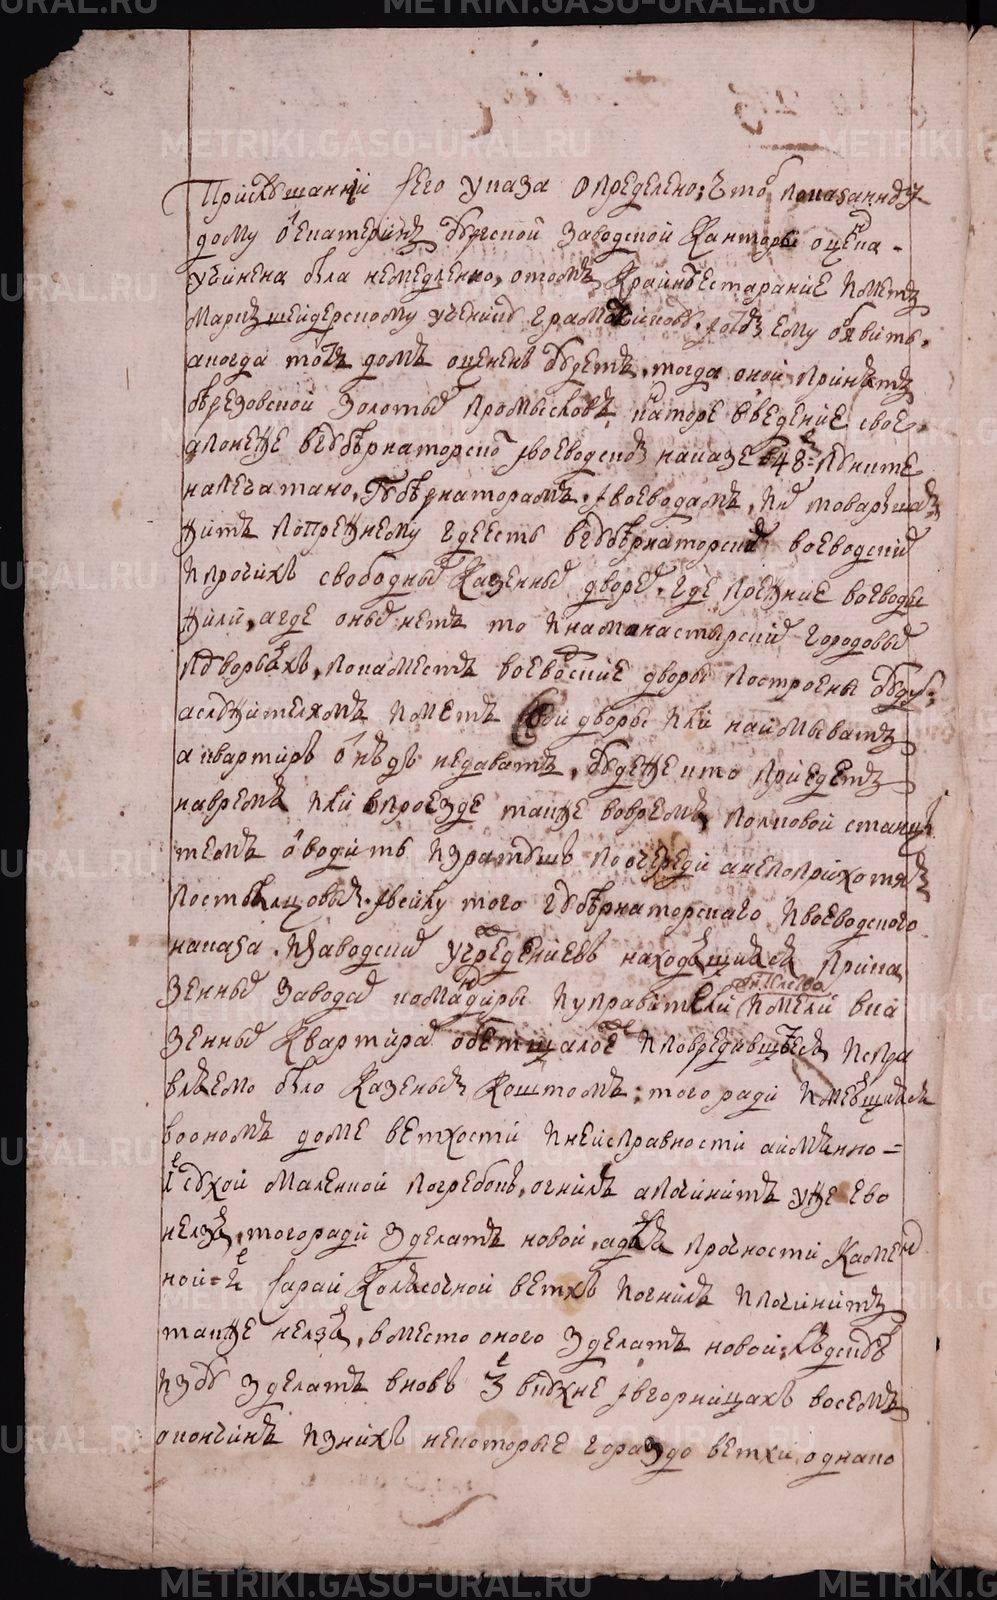 При слушании сего указа определено, чтоб показанному
дому в екатеринбургской заводской канторы оценка
учинена была немедленно, о том крайнее старание иметь
маркшейдерскому ученику и ему объявить,
а когда тот дом оценен будет, тогда оной принять
березовской золотых промыслов канторе в ведение свое,
а понеже в губернаторском и воеводском наказе в 48 м пункте
напечатано, губернаторам и воеводам, и их товарыщам
жить по прежнему где есть в губернаторских воеводских
и протчих свободных казенных дворех, где прежние воеводы
жили, а где оных нет то и на манастырских городовых
подворьях, покамест воевоские дворы построены будут
а служителям иметь свои дворы или наимывать
а квартир в нуду не давать, буде же кто приедет
на время или в проезде также во время полковой
тем отводить из ратуши по очереди а не по прихотям
постояльцовых, и в силу того губернаторского и воеводского
наказа, и заводских учреждениев находящимся при ка
зенных заводах командиры и управители имели в ка
зенных квартирах обетшалое и повредившееся испра
вляемо было казенным коштом, того ради имеющиеся
в оном доме ветхости и неисправности а имянно =
1 е сухой маленкой погребок, огнил а починить уже ево
нелзя, того ради зделать новой, а для прочности камен
ной = 2 е сарай колясочной ветх и огнил и починить
также нелзя, вместо оного зделать новой, людскую
избу зделать вновь 3 е в кухне и в горницах восемь
окончин из них некоторые гораздо ветхи, однако
METRIKI.GASO-URAL.RU